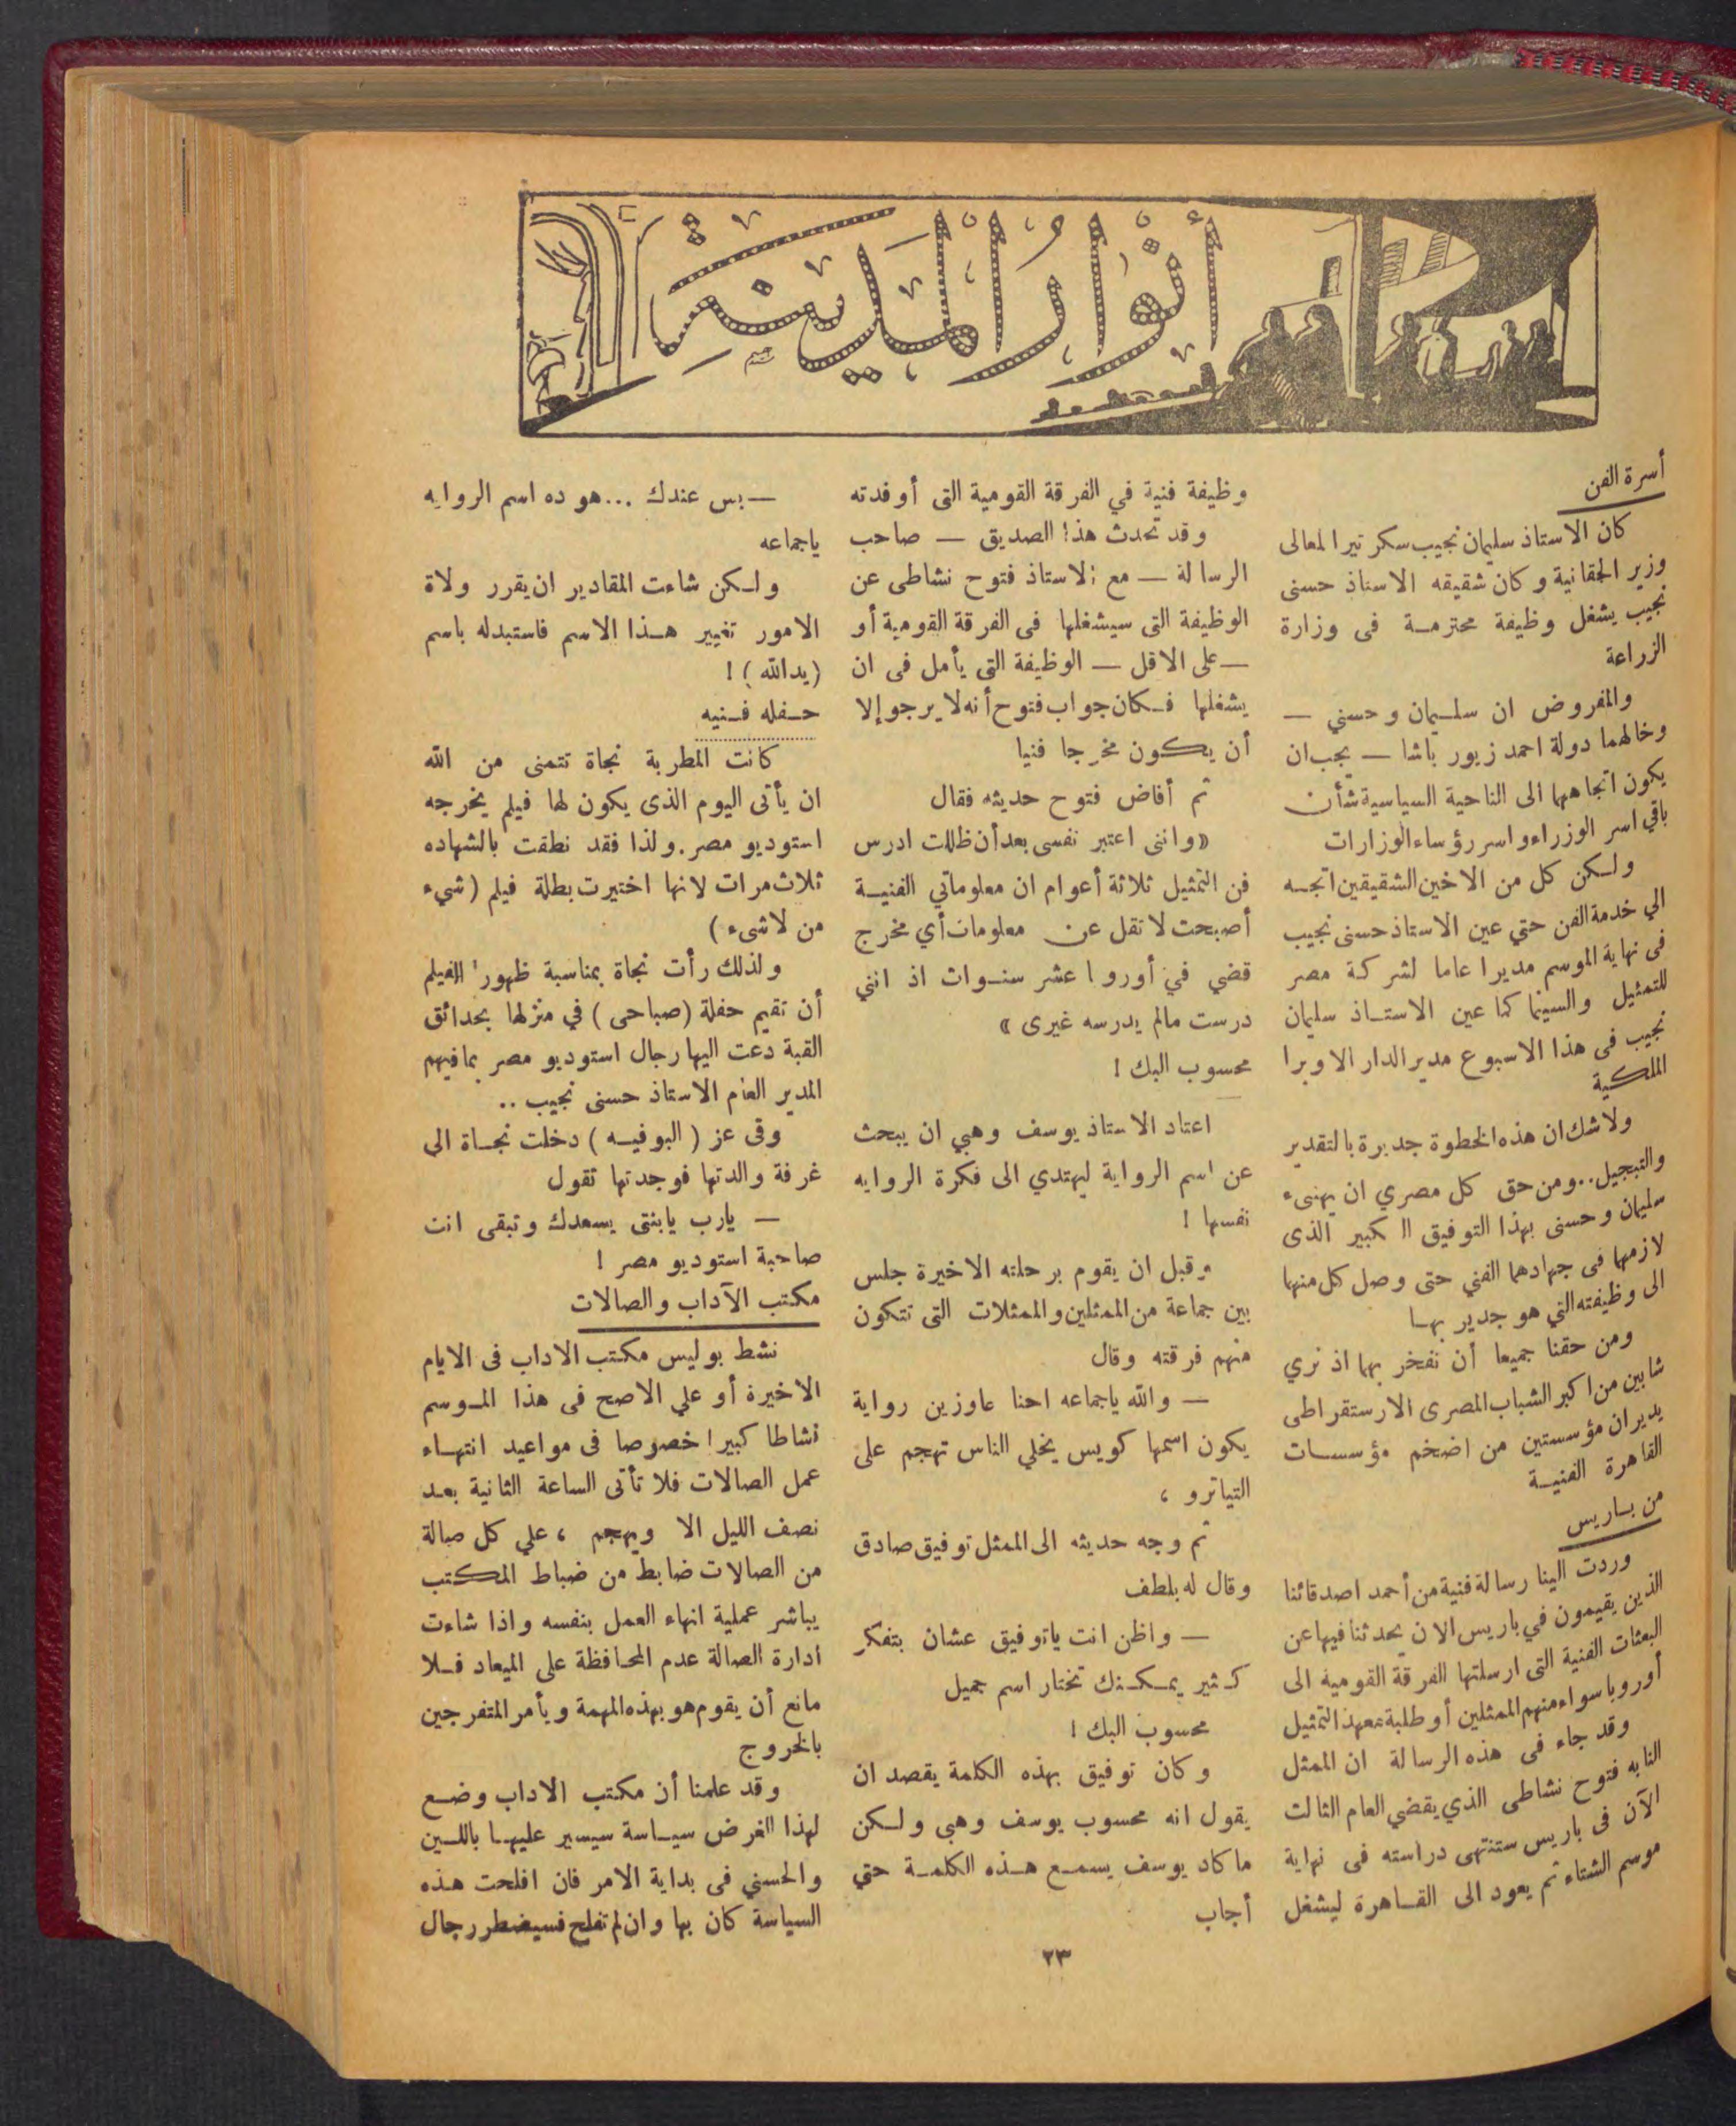 أنوار المدينة
أسرة الفن
كان الاستاذ سليمان نجيب سكرتيرا لمعالى
وزير الحقانية وكان شقيقه الاستاذ حسنى
نجيب يشغل وظيفة محترمة فى وزارة
الزراعة
والمفروض ان سليمان وحسني —
وخالهما دولة احمد زيور باشا — يجب ان
يكون اتجاههما الى الناحية السياسية شأن
باقي اسر الوزراء واسر رؤساء الوزارات
ولكن كل من الاخين الشقيقين اتجه
الي خدمة الفن حتي عين الاستاذ حسنى نجيب
فى نهاية الموسم مديرا عاما لشركة مصر
للتمثيل والسينما كما عين الاستاذ سليمان
نجيب فى هذا الاسبوع مدير الدار الاوبرا
الملكية
ولا شك ان هذه الخطوة جديرة بالتقدير
والتبجيل .. ومن حق كل مصري ان يهنىء
سليمان وحسنى بهذا التوفيق الكبير الذى
لازمهما فى جهادهما الفني حتى وصل كل منهما
الى وظيفته التي هو جدير بها
ومن حقنا جميعا أن نفخر بهما اذ نري
شابين من اكبر الشباب المصرى الارستقراطى
يديران مؤسستين من اضخم مؤسسات
القاهرة الفنية
من باريس
وردت الينا رسالة فنية من أحمد اصدقائنا
الذين يقيمون في باريس الان يحدثنا فيها عن
البعثات الفنية التى ارسلتها الفرقة القومية الى
أوروبا سواء منهم الممثلين أو طلبة معهد التمثيل
وقد جاء فى هذه الرسالة ان الممثل
النابه فتوح نشاطى الذي يقضي العام الثالت
الآن فى باريس ستنتهى دراسته فى نهاية
موسم الشتاء ثم يعود الى القاهرة ليشغل
وظيفة فنية في الفرقة القومية التى أوفدته
وقد تحدث هذا الصديق — صاحب
الرسالة — مع الاستاذ فتوح نشاطى عن
الوظيفة التى سيشغلها فى الفرقة القومية أو
— على الاقل — الوظيفة التى يأمل فى ان
يشغلها فكان جواب فتوح أنه لا يرجو إلا
أن يكون مخرجا فنيا
ثم أفاض فتوح حديثه فقال
« واننى اعتبر نفسى بعد أن ظللت ادرس
فن التمثيل ثلاثة أعوام ان معلوماتي الفنية
أصبحت لا تقل عن معلومات أي مخرج
قضي في أوروبا عشر سنوات اذ انني
درست مالم يدرسه غيرى »
محسوب البك !
اعتاد الاستاذ يوسف وهبي ان يبحث
عن اسم الرواية ليهتدي الى فكرة الروايه
نفسها !
وقبل ان يقوم برحلته الاخيرة جلس
بين جماعة من الممثلين والممثلات التى تتكون
منهم فرقته وقال
— والله ياجماعه احنا عاوزين رواية
يكون اسمها كويس يخلي الناس تهجم على
التياترو ،
ثم وجه حديثه الى الممثل توفيق صادق
وقال له بلطف
— واظن انت ياتوفيق عشان بتفكر
كثير يمكنك تختار اسم جميل
محسوب البك !
وكان توفيق بهذه الكلمة يقصد ان
يقول انه محسوب يوسف وهبى ولكن
ما كاد يوسف يسمع هذه الكلمة حتي
أجاب
— بس عندك ... هو ده اسم الروايه
ياجماعه
ولكن شاءت المقادير ان يقرر ولاة
الامور تغيير هذا الاسم فاستبدله باسم
( يد الله ) !
حفله فنيه
كانت المطربة نجاة تتمنى من الله
ان يأتى اليوم الذى يكون لها فيلم يخرجه
استوديو مصر . ولذا فقد نطقت بالشهاده
ثلاث مرات لانها اختيرت بطلة فيلم ( شيء
من لا شىء )
ولذلك رأت نجاة بمناسبة ظهور الفيلم
أن تقيم حفلة ( صباحى ) في منزلها بحدائق
القبة دعت اليها رجال استوديو مصر بما فيهم
المدير العام الاستاذ حسنى نجيب ..
وفى عز ( البوفيه ) دخلت نجاة الى
غرفة والدتها فوجدتها تقول
— يارب يابنتى يسعدك وتبقى انت
صاحبة استوديو مصر !
مكتب الآداب والصالات
نشط بوليس مكتب الاداب فى الايام
الاخيرة أو علي الاصح فى هذا الموسم
نشاطا كبيرا خصوصا فى مواعيد انتهاء
عمل الصالات فلا تأتى الساعة الثانية بعد
نصف الليل الا ويهجم ، علي كل صالة
من الصالات ضابط من ضباط المكتب
يباشر عملية انهاء العمل بنفسه واذا شاءت
ادارة الصالة عدم المحافظة على الميعاد فلا
مانع أن يقوم هو بهذه المهمة ويأمر المتفرجين
بالخروج
وقد علمنا أن مكتب الاداب وضع
لهذا الغرض سياسة سيسير عليها باللين
والحسني فى بداية الامر فان افلحت هذه
السياسة كان بها وان لم تفلح فسيضطر رجال
٢٣